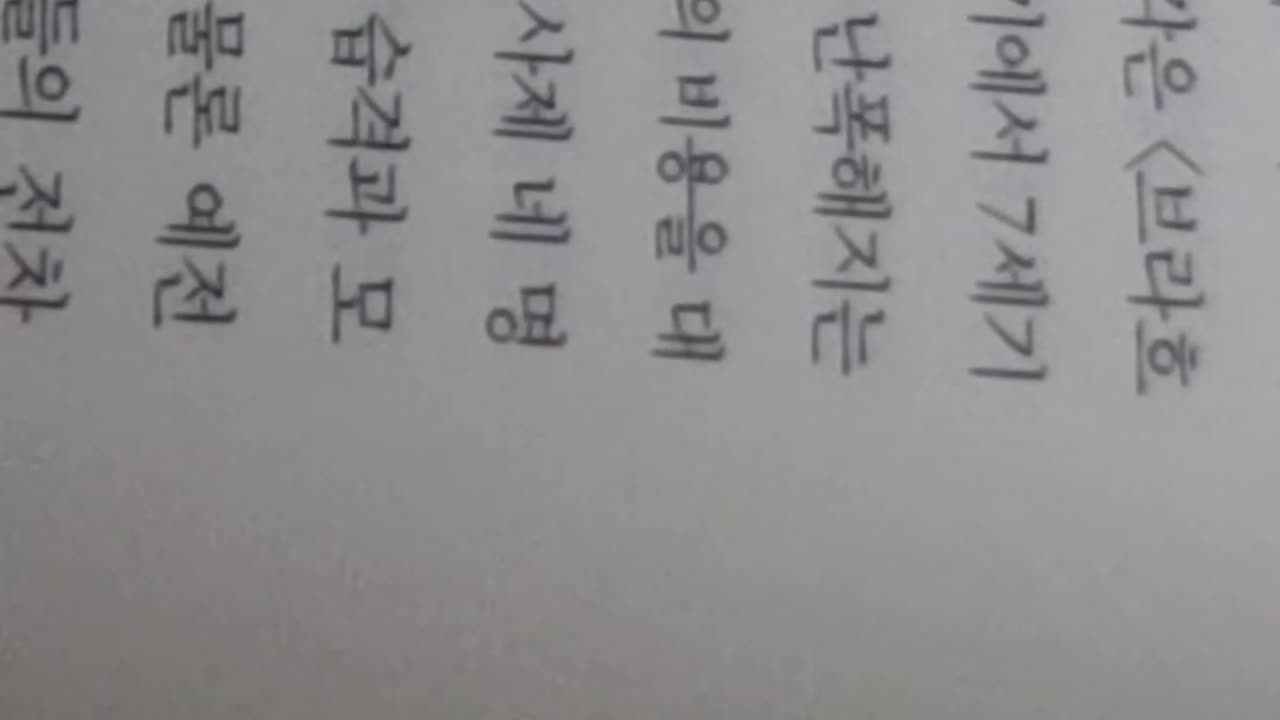 은 〈브라흐
에서 7세기
난폭해지는
비용을 대
사제 네 명
습격과 모
물론 예전
들의 전차